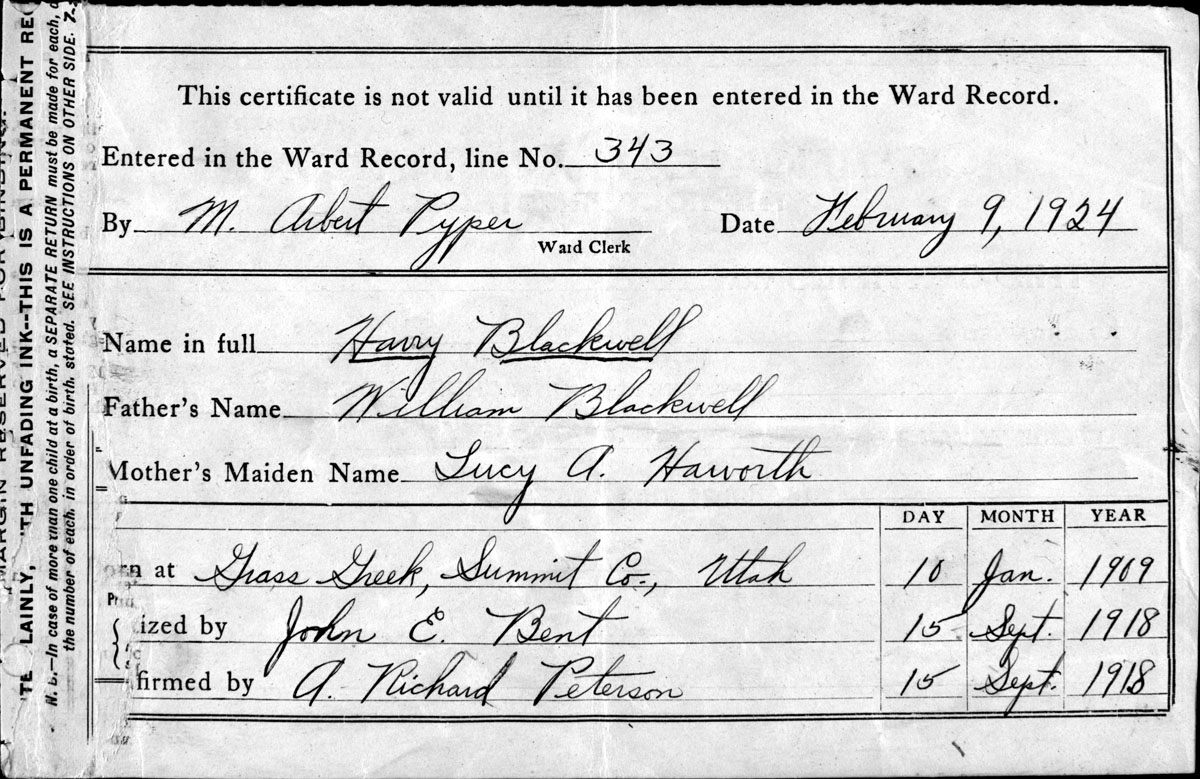 This certificate is not valid until it has been entered in the Ward Record.
Entered in the Ward Record, line No. 343
By M. Arbert Pyper Date February 9, 1924
Ward Clerk
Name in full Harry Blackwell
Father's Name William Blackwell
Mother's Maiden Name Lucy A. Haworth
DAY MONTH YEAR
orn at Grass Greek, Summit Co., Utah 10 Jan. 1909
ized by John E. Bent 15 Sept. 1918
firmed by A. Richard Peterson 15 Sept. 1918
MARGIN RESERVED FOR BINDING.
TE LAINLY, TH UNFADING INK--THIS IS A PERMANENT REC
N. B.—In case of more than one child at a birth, a SEPARATE RETURN must be made for each,
the number of each, in order of birth, stated. SEE INSTRUCTIONS ON OTHER SIDE.